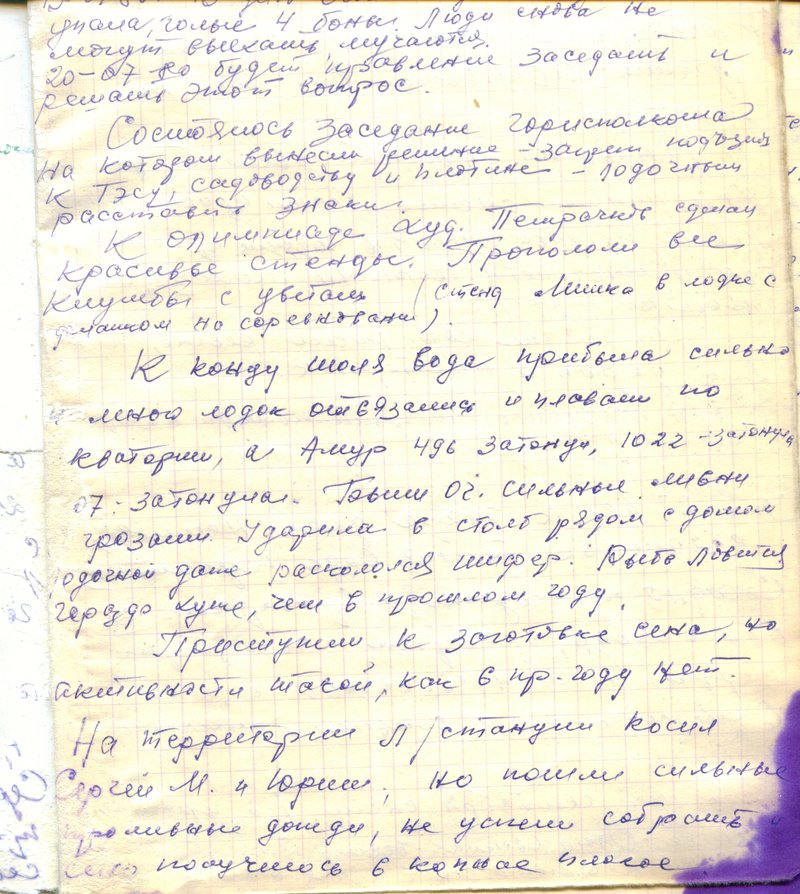 упала, голые 4 боны. Люди снова не
могут выехать мучаются.
20-07-80 будет правление заседать и
решать этот вопрос.
Состоялось заседание горисполкома
на котором вынесли решение - запрет подъезда
к ТЭСу, садоводству и плотине - лодочным
расставить знаки.
К олимпиаде худ. Петрочить сделал
красивые стенды. Пропололи все
клумбы с цветами (стенд Мишка в лодке с
на соревновании).
К концу июля вода прибыла сильно
много лодок отвязались и плавали по
акватории, а Амур 496 затонул, 1022 - затонула
07 - затонула. Были оч. сильные ливни
грозами. Ударила в столб рядом с домом
лодочной даже раскололся шифер. Рыба ловится
гораздо хуже, чем в прошлом году.
Приступили к заготовке сена, но
активности такой, как в пр. году нет.
На территории л/станции косил
Сергей М. и Юрий, но пошли сильные
проливные дожди, не успели собрать и
сено получилось в копнах плохое